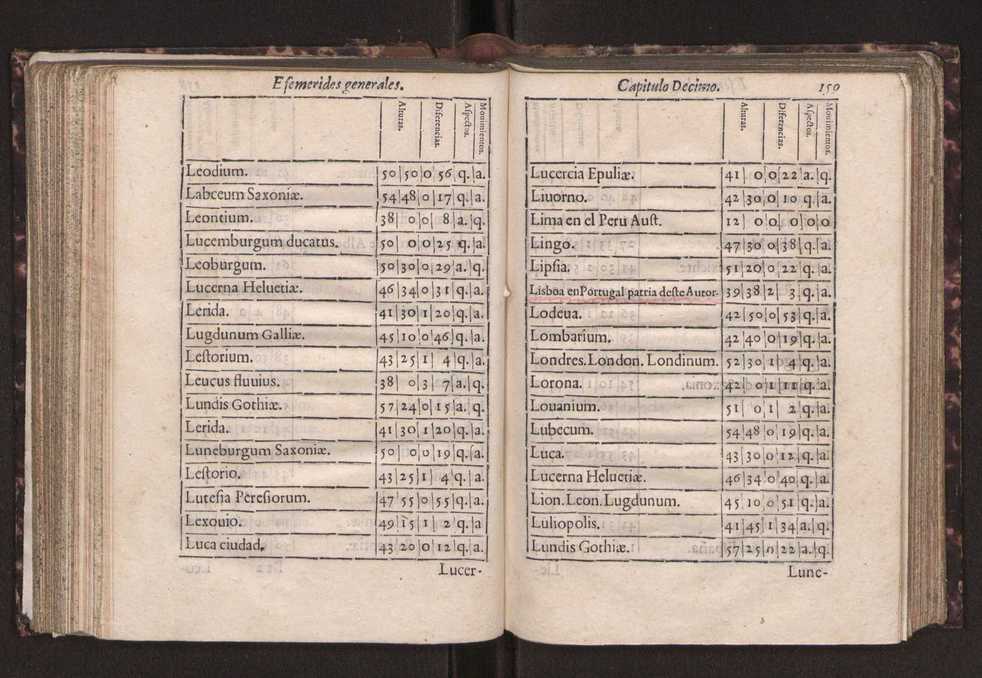 Efemerides generales.
Alturas. Diferencias. Aspectos. Mouimientos.
Leodium. 50 50 0 56 q. a.
Labceum Saxoniæ. 54 48 0 17 q. a.
Leontium. 38 0 0 8 a. q.
Lucemburgum ducatus. 50 0 0 25 q. a.
Leoburgum. 50 30 0 29 a. q.
Lucerna Heluetiæ. 46 34 0 31 q. a.
Lerida. 41 30 1 20 q. a.
Lugdunum Galliæ. 45 10 0 46 q. a.
Lestorium. 43 25 1 4 q. a.
Leucus fluuius. 38 0 3 7 a. q.
Lundis Gothiæ. 57 24 0 15 a. q.
Lerida. 41 30 1 20 q. a.
Luneburgum Saxoniæ. 50 0 0 19 q. a.
Lestorio. 43 25 1 4 q. a.
Lutesia Peresiorum. 47 55 0 55 q. a.
Lexouio. 49 15 1 2 q. a
Luca ciudad. 43 20 0 12 q. a.
Lucer-
Capitulo Decimo. 150
Alturas. Diferencias. Aspectos. Mouimientos.
Lucercia Epuliæ. 41 0 0 22 a. q.
Liuorno. 42 30 0 10 q. a.
Lima en el Peru Aust. 12 0 0 0 0 0
Lingo. 47 30 0 38 q. a.
Lipsia. 51 20 0 22 q. a.
Lisboa en Portugal patria deste Autor. 39 38 2 3 q. a.
Lodeua. 42 50 0 53 q. a.
Lombarium. 42 40 0 19 q. a.
Londres. London. Londinum. 52 30 1 4 q. a.
Lorona. 42 0 1 11 q. a.
Louanium. 51 0 1 2 q. a.
Lubecum. 54 48 0 19 q. a.
Luca. 43 30 0 12 q. a.
Lucerna Heluetiæ. 46 34 0 40 q. a.
Lion. Leon. Lugdunum. 45 10 0 51 q. a.
Luliopolis. 41 45 1 34 a. q.
Lundis Gothiæ. 57 25 0 22 a. q.
Lune-